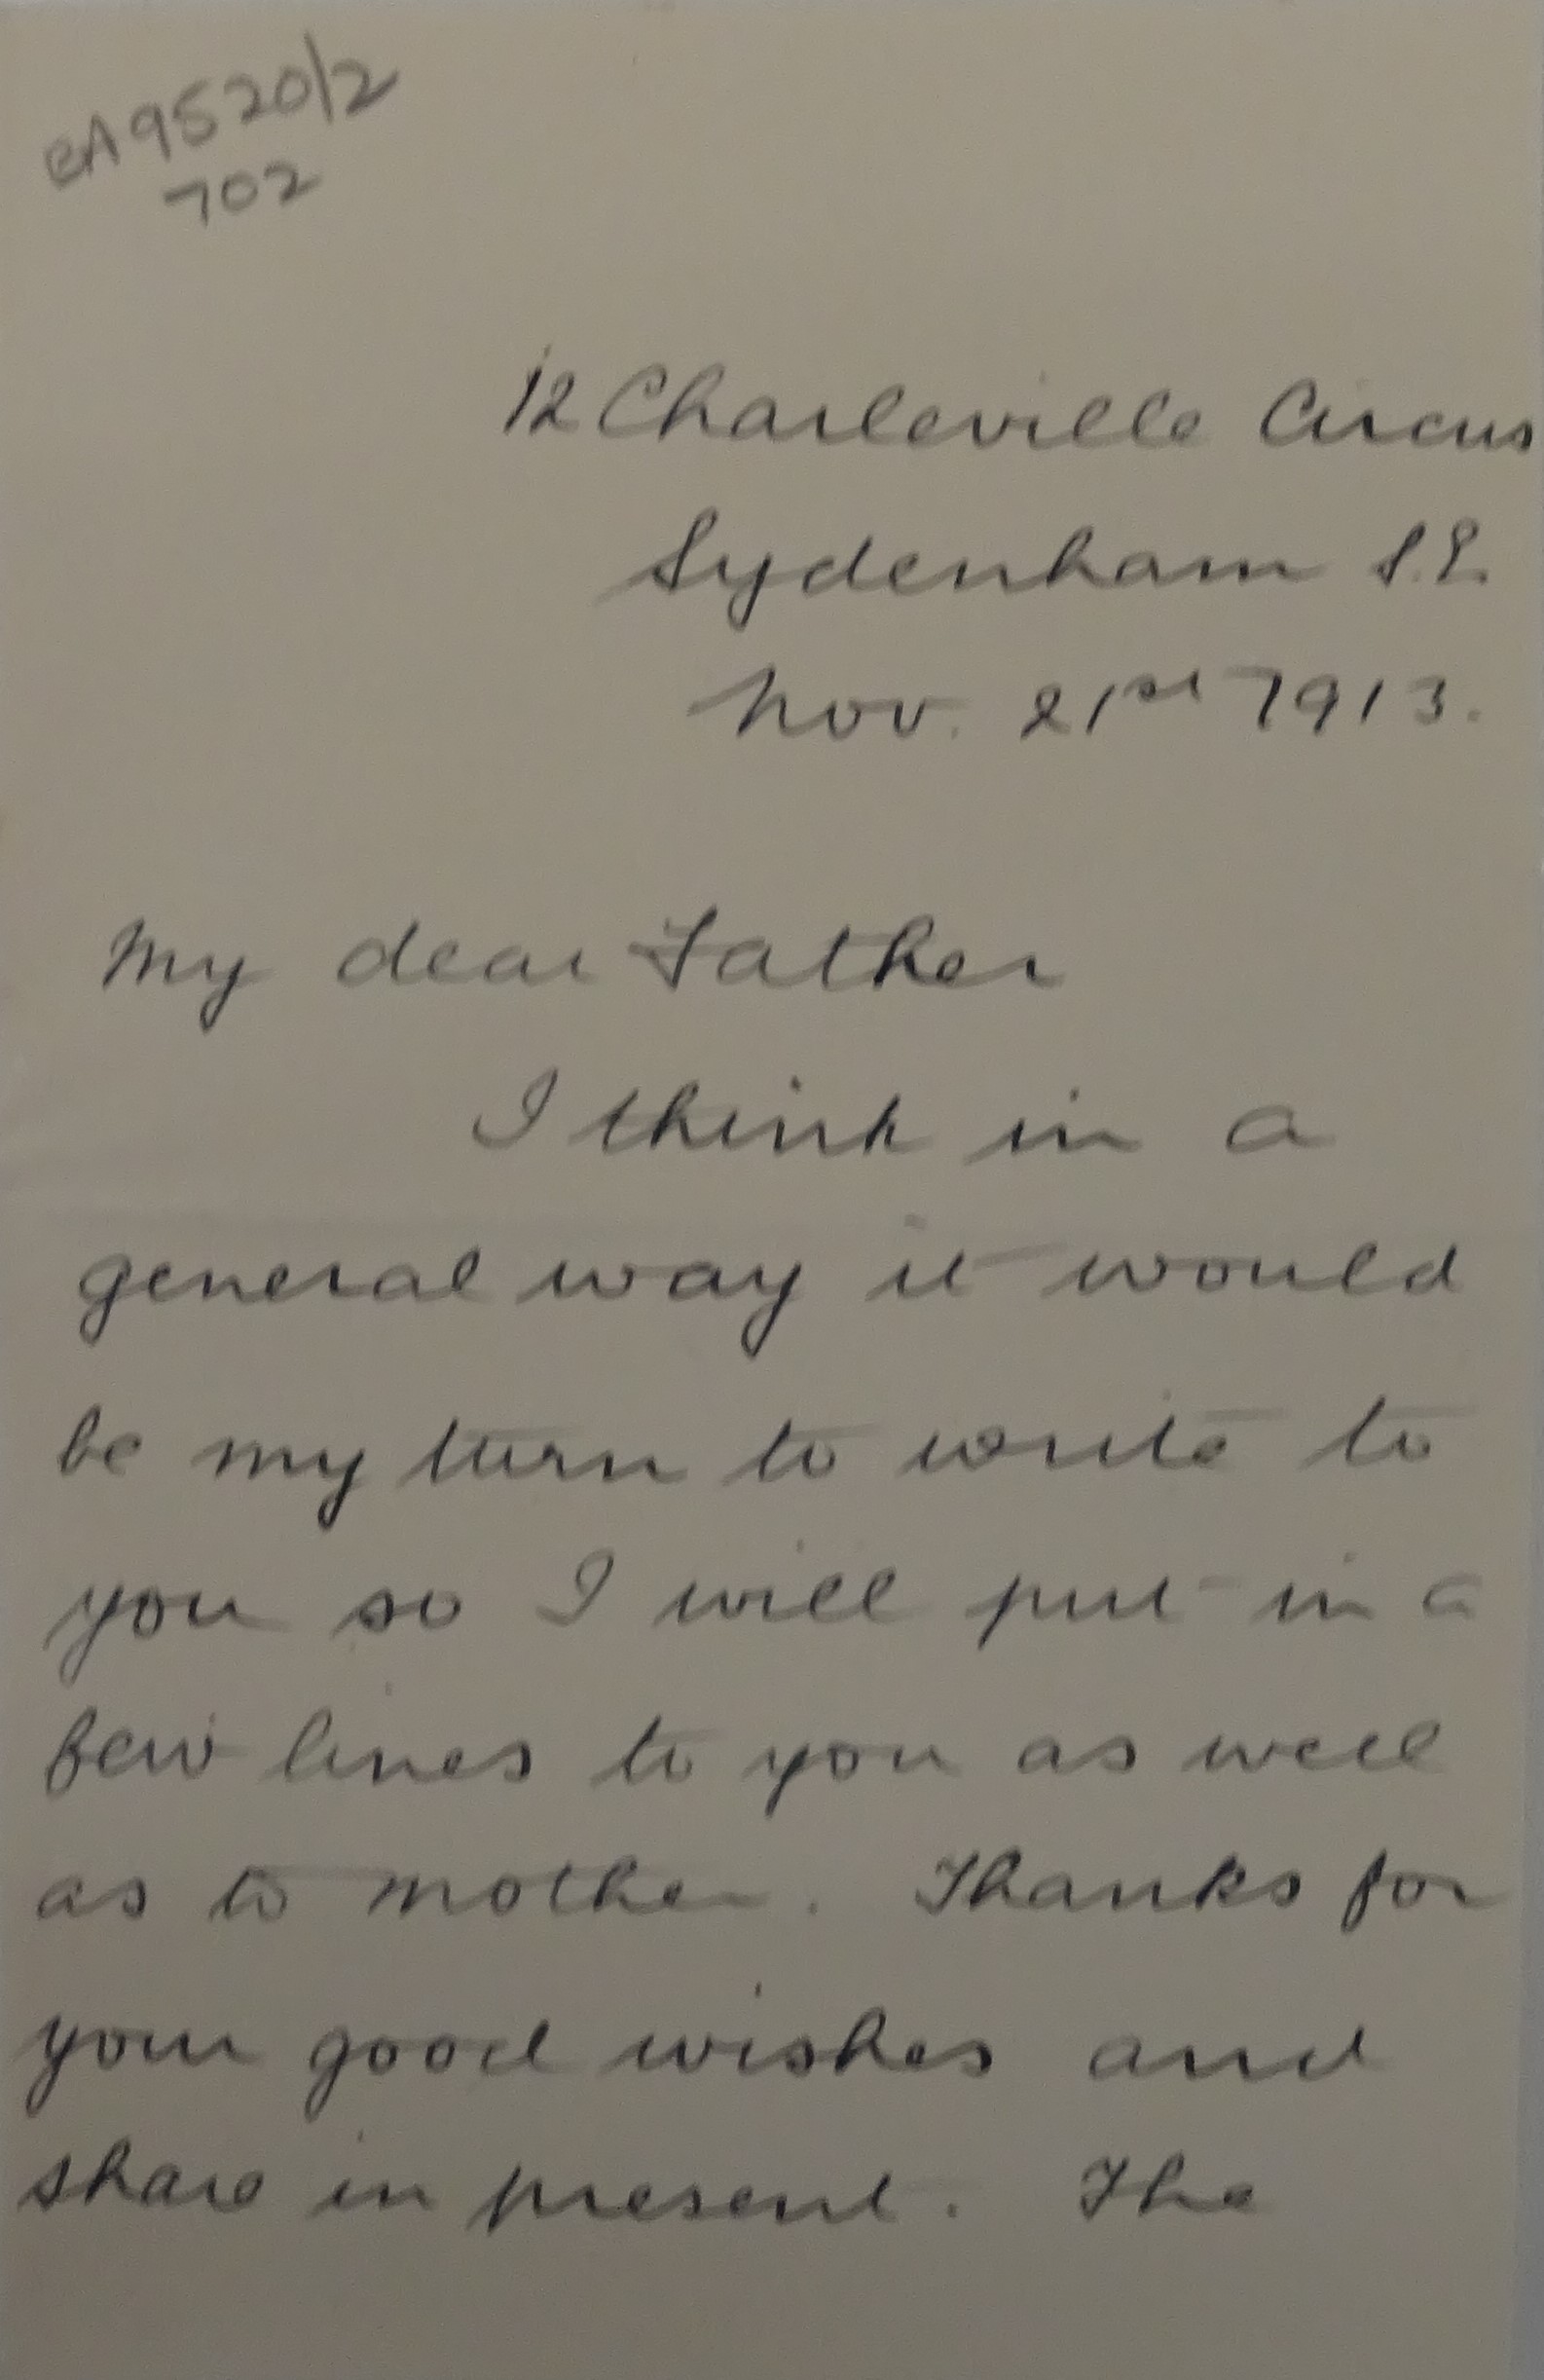 eA9520/2
702
12 Charleville Circus
Sydenham S.E.
Nov. 21st 1913.
My dear Father
I think in a
general way it would
be my turn to write to
you so I will put in a
few lines to you as well
as to mother. Thanks for
your good wishes and
share in present. The